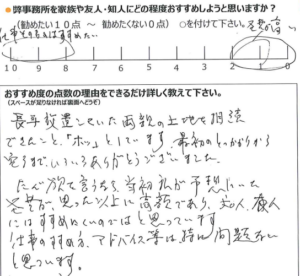 ●弊事務所を家族や友人・知人にどの程度おすすめしようと思いますか？
（勧めたい１０点 ～ 勧めたくない０点） ○を付けて下さい。
仕事を考えればすすめたい
10 9 8 7 6 5 4 3 2 1 0
おすすめ度の点数の理由をできるだけ詳しく教えて下さい。
（スペースが足りなければ裏面へどうぞ）
長年放置していた両親の土地を相続
できたこと、「ホッ」としています。最初のとっかかりから
完了までいろいろありがとうございました。
ただ欲を言うなら、当初私が予想していた
思った以上に高額であり、友人、
にはすすめにくいのではと思っています。
仕事のすすめ方、アドバイス等は特に問題ない
と思っています。